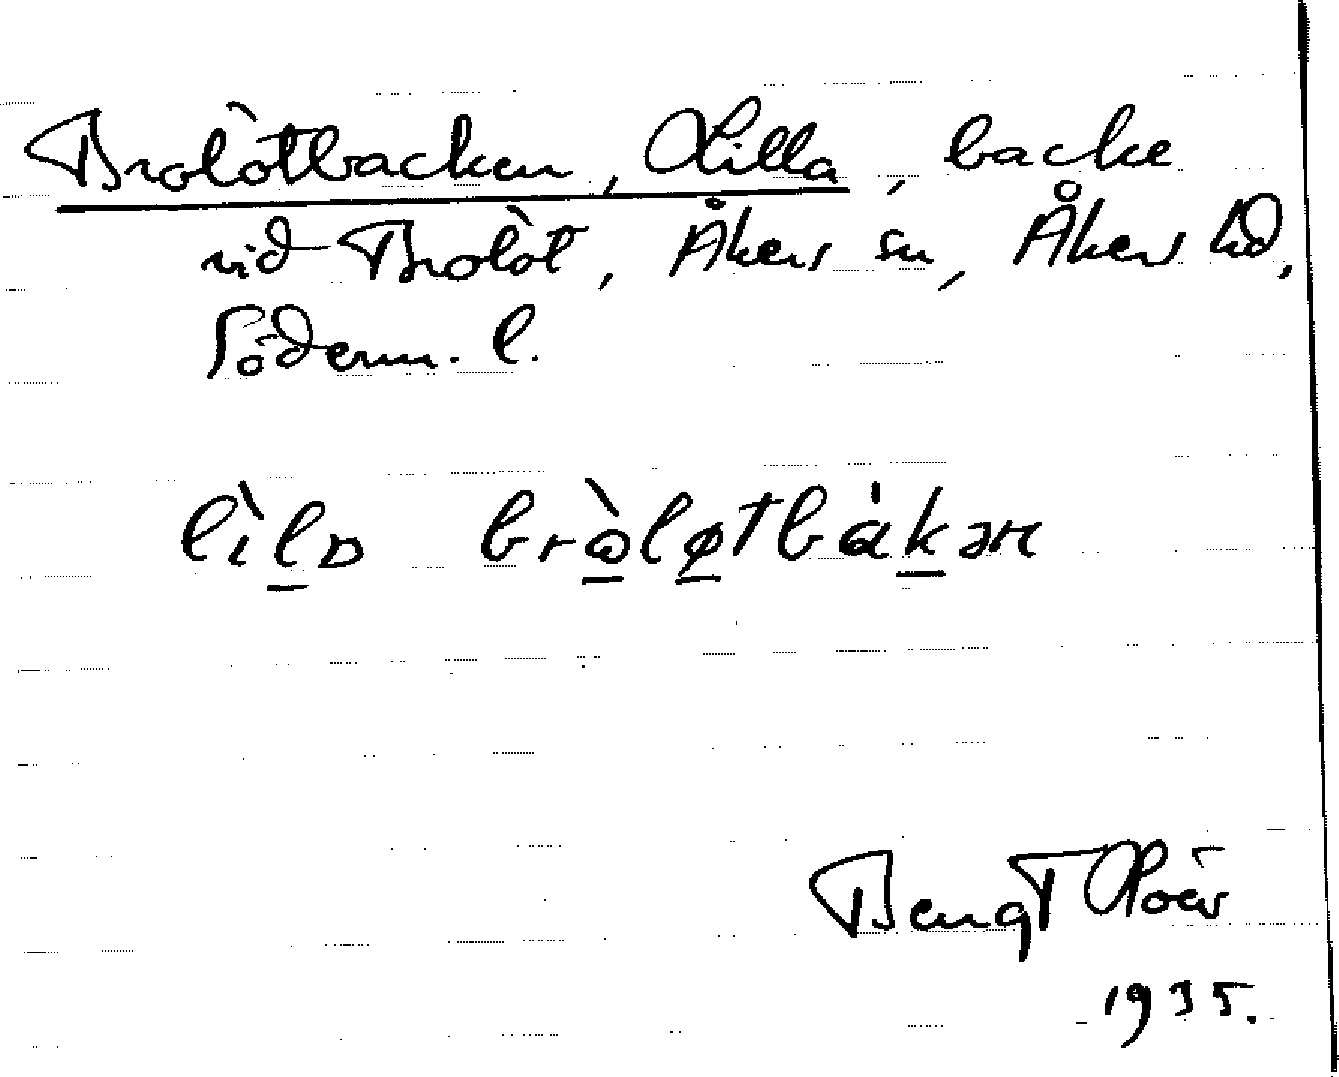 Brolötbacken, Lilla, backe
vid Brolöt, Åkers sn, Åkers hd,
Söderm. l.
lìlɒ bròløtbákən
Bengt
1935.